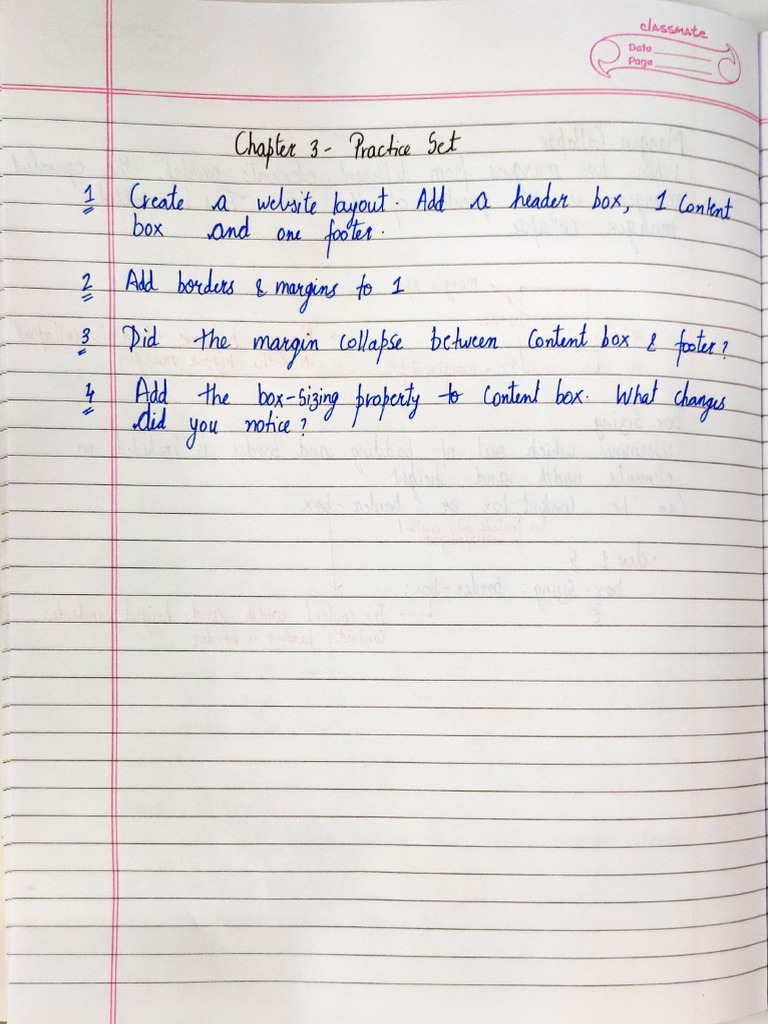 classmate
Date
Page
Chapter 3 - Practice Set
1 Create a website layout. Add a header box, 1 content
box and one footer.
2 Add borders & margins to 1
3 Did the margin collapse between content box & footer?
4 Add the box-sizing property to content box. What changes
did you notice?